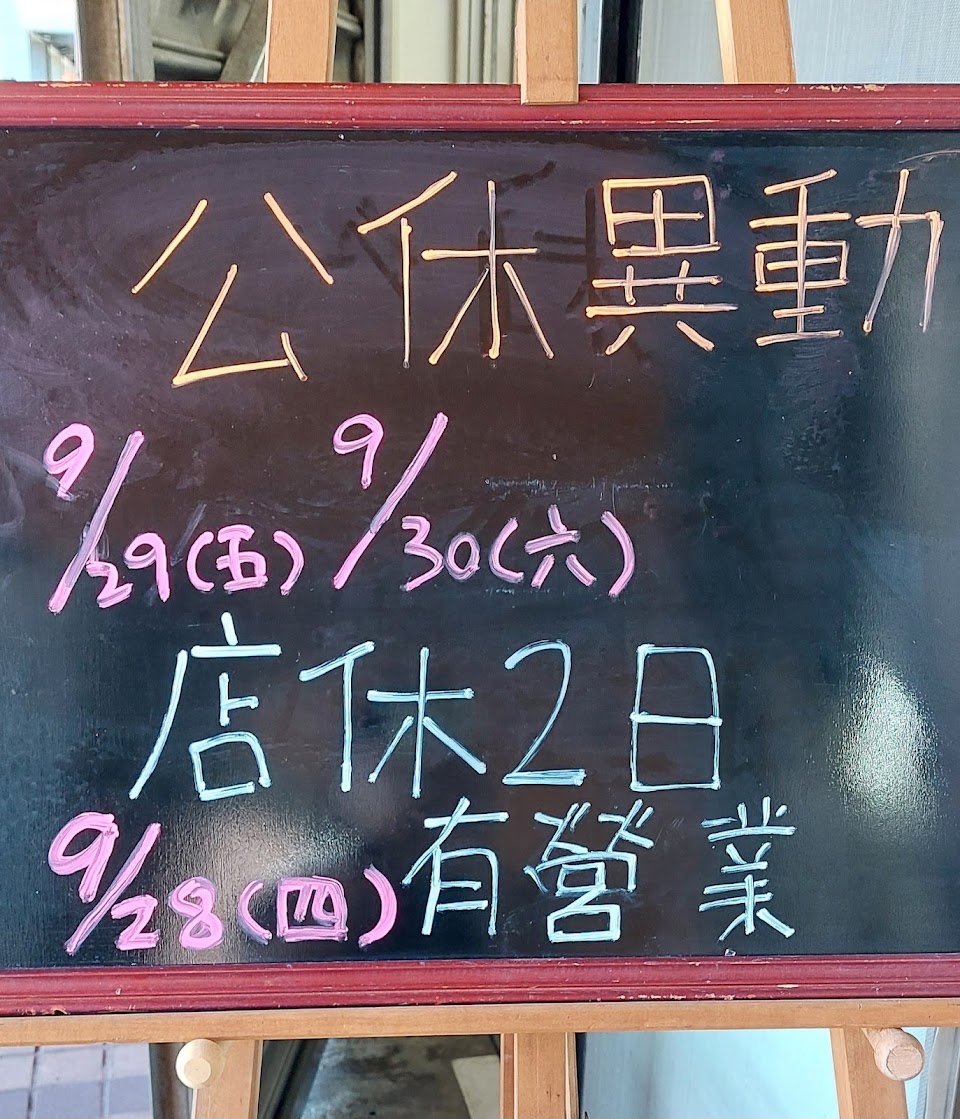 公休異動
9/29(五) 9/30(六)
店休2日
9/28(四)有營業